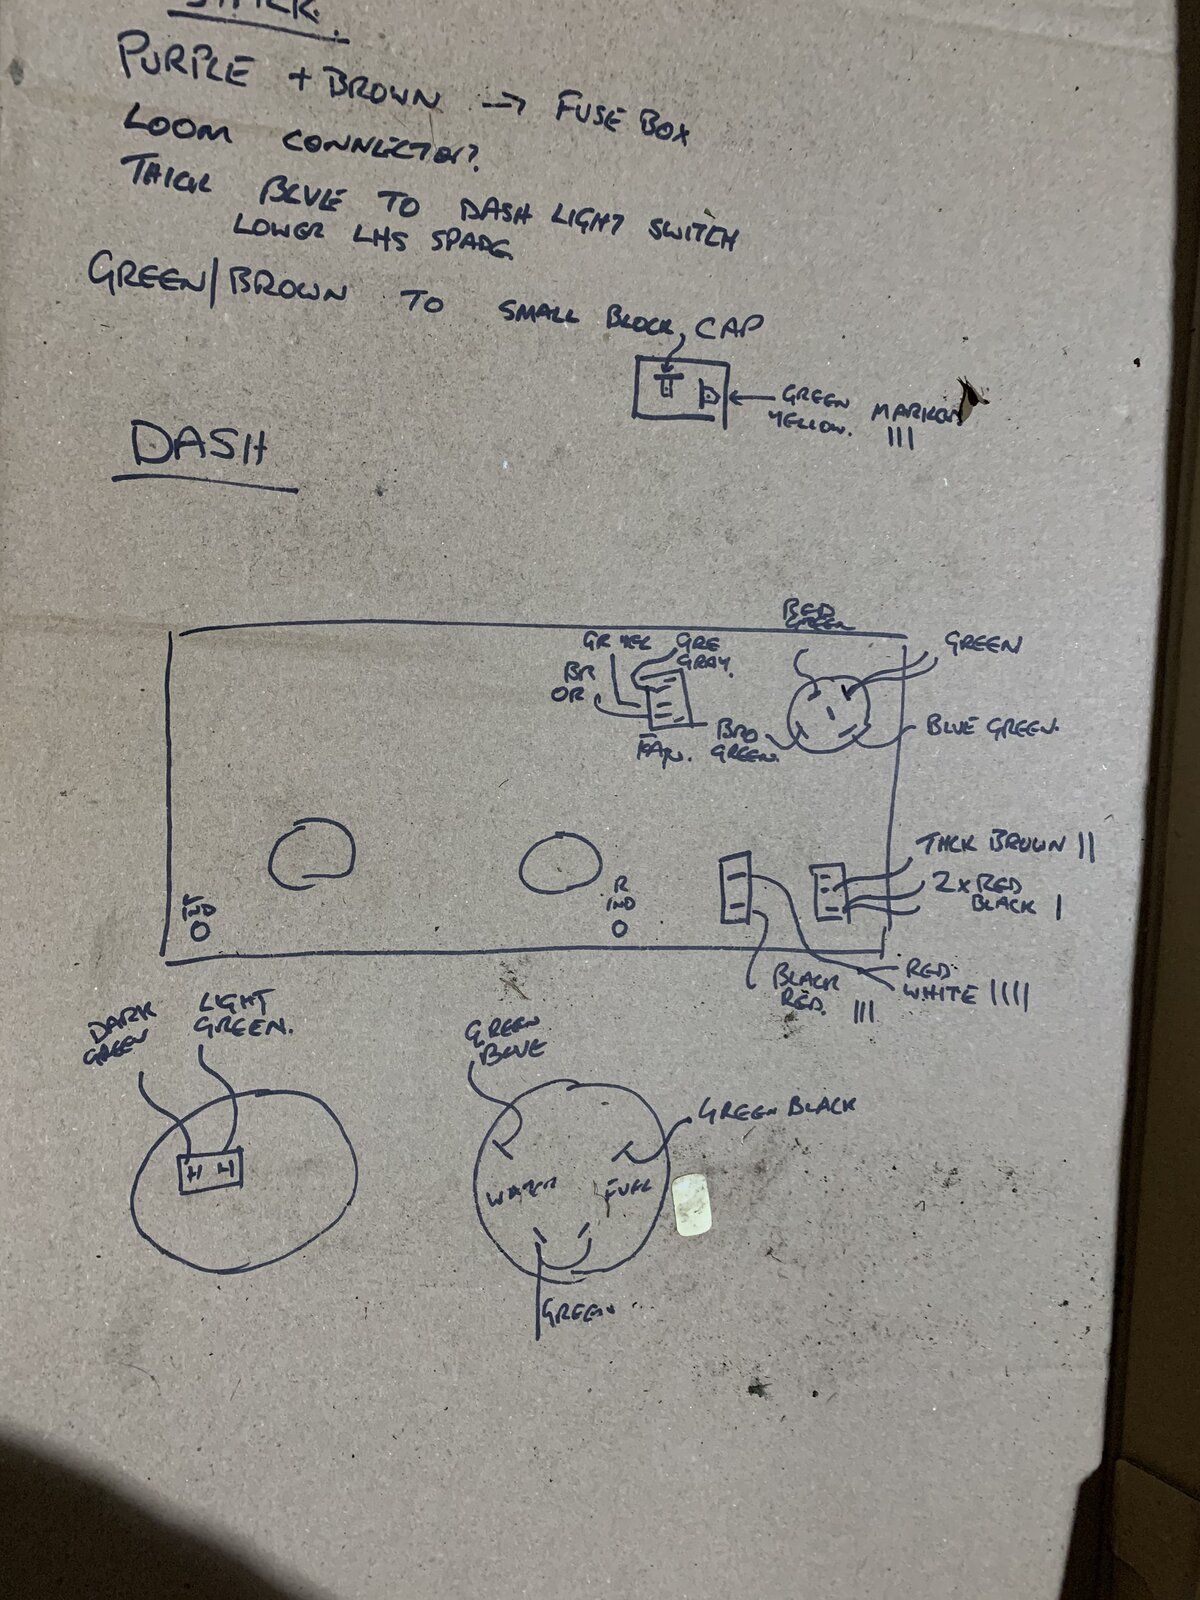 PURPLE + BROWN → FUSE BOX
LOOM CONNECTOR?
THICK BLUE TO DASH LIGHT SWITCH
LOWER LHS SPADE
GREEN/BROWN TO SMALL BLOCK, CAP
GREEN MARKED
YELLOW. III
DASH
RED
GREEN
GR YEL
GRE
GRAY.
GREEN
BR
OR
FAN.
BRO
GREEN.
BLUE GREEN.
THCK BROWN II
2 x RED
BLACK I
IND
R
IND
BLACK
RED. III
RED
WHITE IIII
DARK
GREEN
LIGHT
GREEN.
GREEN
BLUE
GREEN BLACK
WATER
FUEL
GREEN